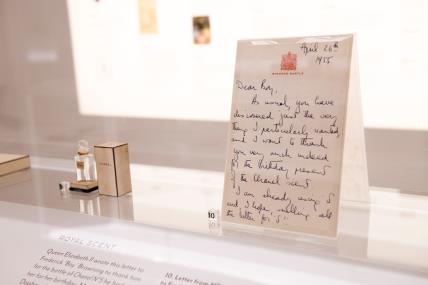 April 26th
1955
WINDSOR CASTLE
Dear Boy,
As usual, you have
discovered just the very
thing I particularly wanted,
and I want to thank
you very much indeed
for the birthday present
of the Chanel scent.
I am already using it
and, I hope, smelling all
the better for it!
CHANEL
10
ROYAL SCENT
Queen Elizabeth II wrote this letter to
Frederick 'Boy' Browning to thank him
for the bottle of Chanel N°5 he
her for her birthday.
10. Letter from